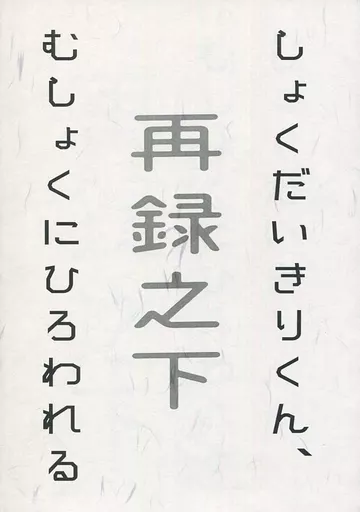 しょくだいきりくん、
再録之下
むしょくにひろわれる